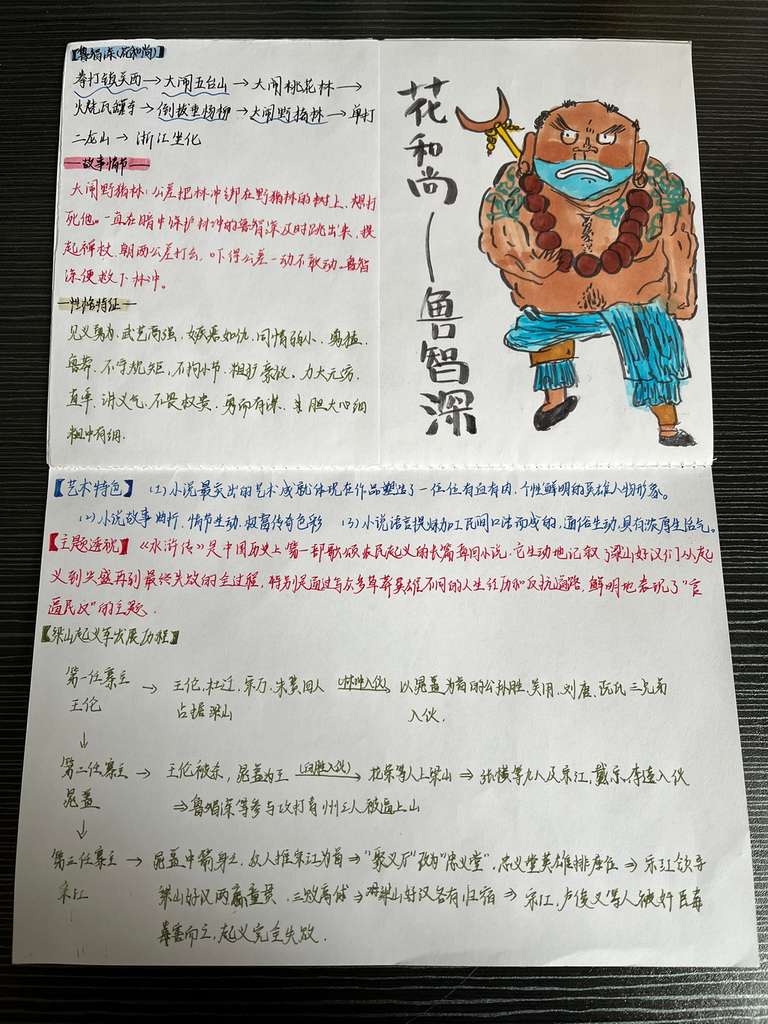 【鲁智深(花和尚)】
拳打镇关西→大闹五台山→大闹桃花林→
火烧瓦罐寺→倒拔垂杨柳→大闹野猪林→单打
二龙山→浙江坐化
故事情节
大闹野猪林:公差把林冲绑在野猪林的树上,想打
死他。一直在暗中保护林冲的鲁智深及时跳出来,提
起禅杖,朝两公差打去,吓得公差一动不敢动。鲁智
深便救下林冲。
性格特征
见义勇为、武艺高强、嫉恶如仇、同情弱小、勇猛、
鲁莽、不守规矩、不拘小节、粗犷豪放、力大无穷、
直率、讲义气、不畏权贵、勇而有谋、胆大心细
粗中有细.
花和尚—鲁智深
【艺术特色】 (1)小说最突出的艺术成就体现在作品塑造了一位位有血有肉,个性鲜明的英雄人物形象。
(2)小说故事曲折,情节生动,极富传奇色彩 (3)小说语言提炼加工民间口语而成的,通俗生动,具有浓厚生活气。
【主题透视】《水浒传》是中国历史上第一部歌颂农民起义的长篇章回小说,它生动地记叙了梁山好汉们从起
义到兴盛再到最终失败的全过程,特别是通过写众多草莽英雄不同的人生经历和反抗道路,鲜明地表现了"官
逼民反"的主题.
【梁山起义军发展历程】
第一任寨主 → 王伦、杜迁、宋万、朱贵四人 林冲入伙→ 以晁盖为首的公孙胜、吴用、刘唐、阮氏三兄弟
王伦 占据梁山 入伙.
↓
第二任寨主 → 王伦被杀,晁盖为王 白胜入伙→ 花荣等人上梁山 ⇒ 张横等九人及宋江、戴宗、李逵入伙
晁盖 ⇒鲁智深等参与攻打青州三人被逼上山
↓
第三任寨主 → 晁盖中箭身亡,众人推宋江为首⇒"聚义厅"改为"忠义堂",忠义堂英雄排座位⇒宋江领导
宋江 梁山好汉两赢童贯,三败高俅⇒梁山好汉各有归宿⇒宋江、卢俊义等人被奸臣毒
毒害而亡,起义完全失败.